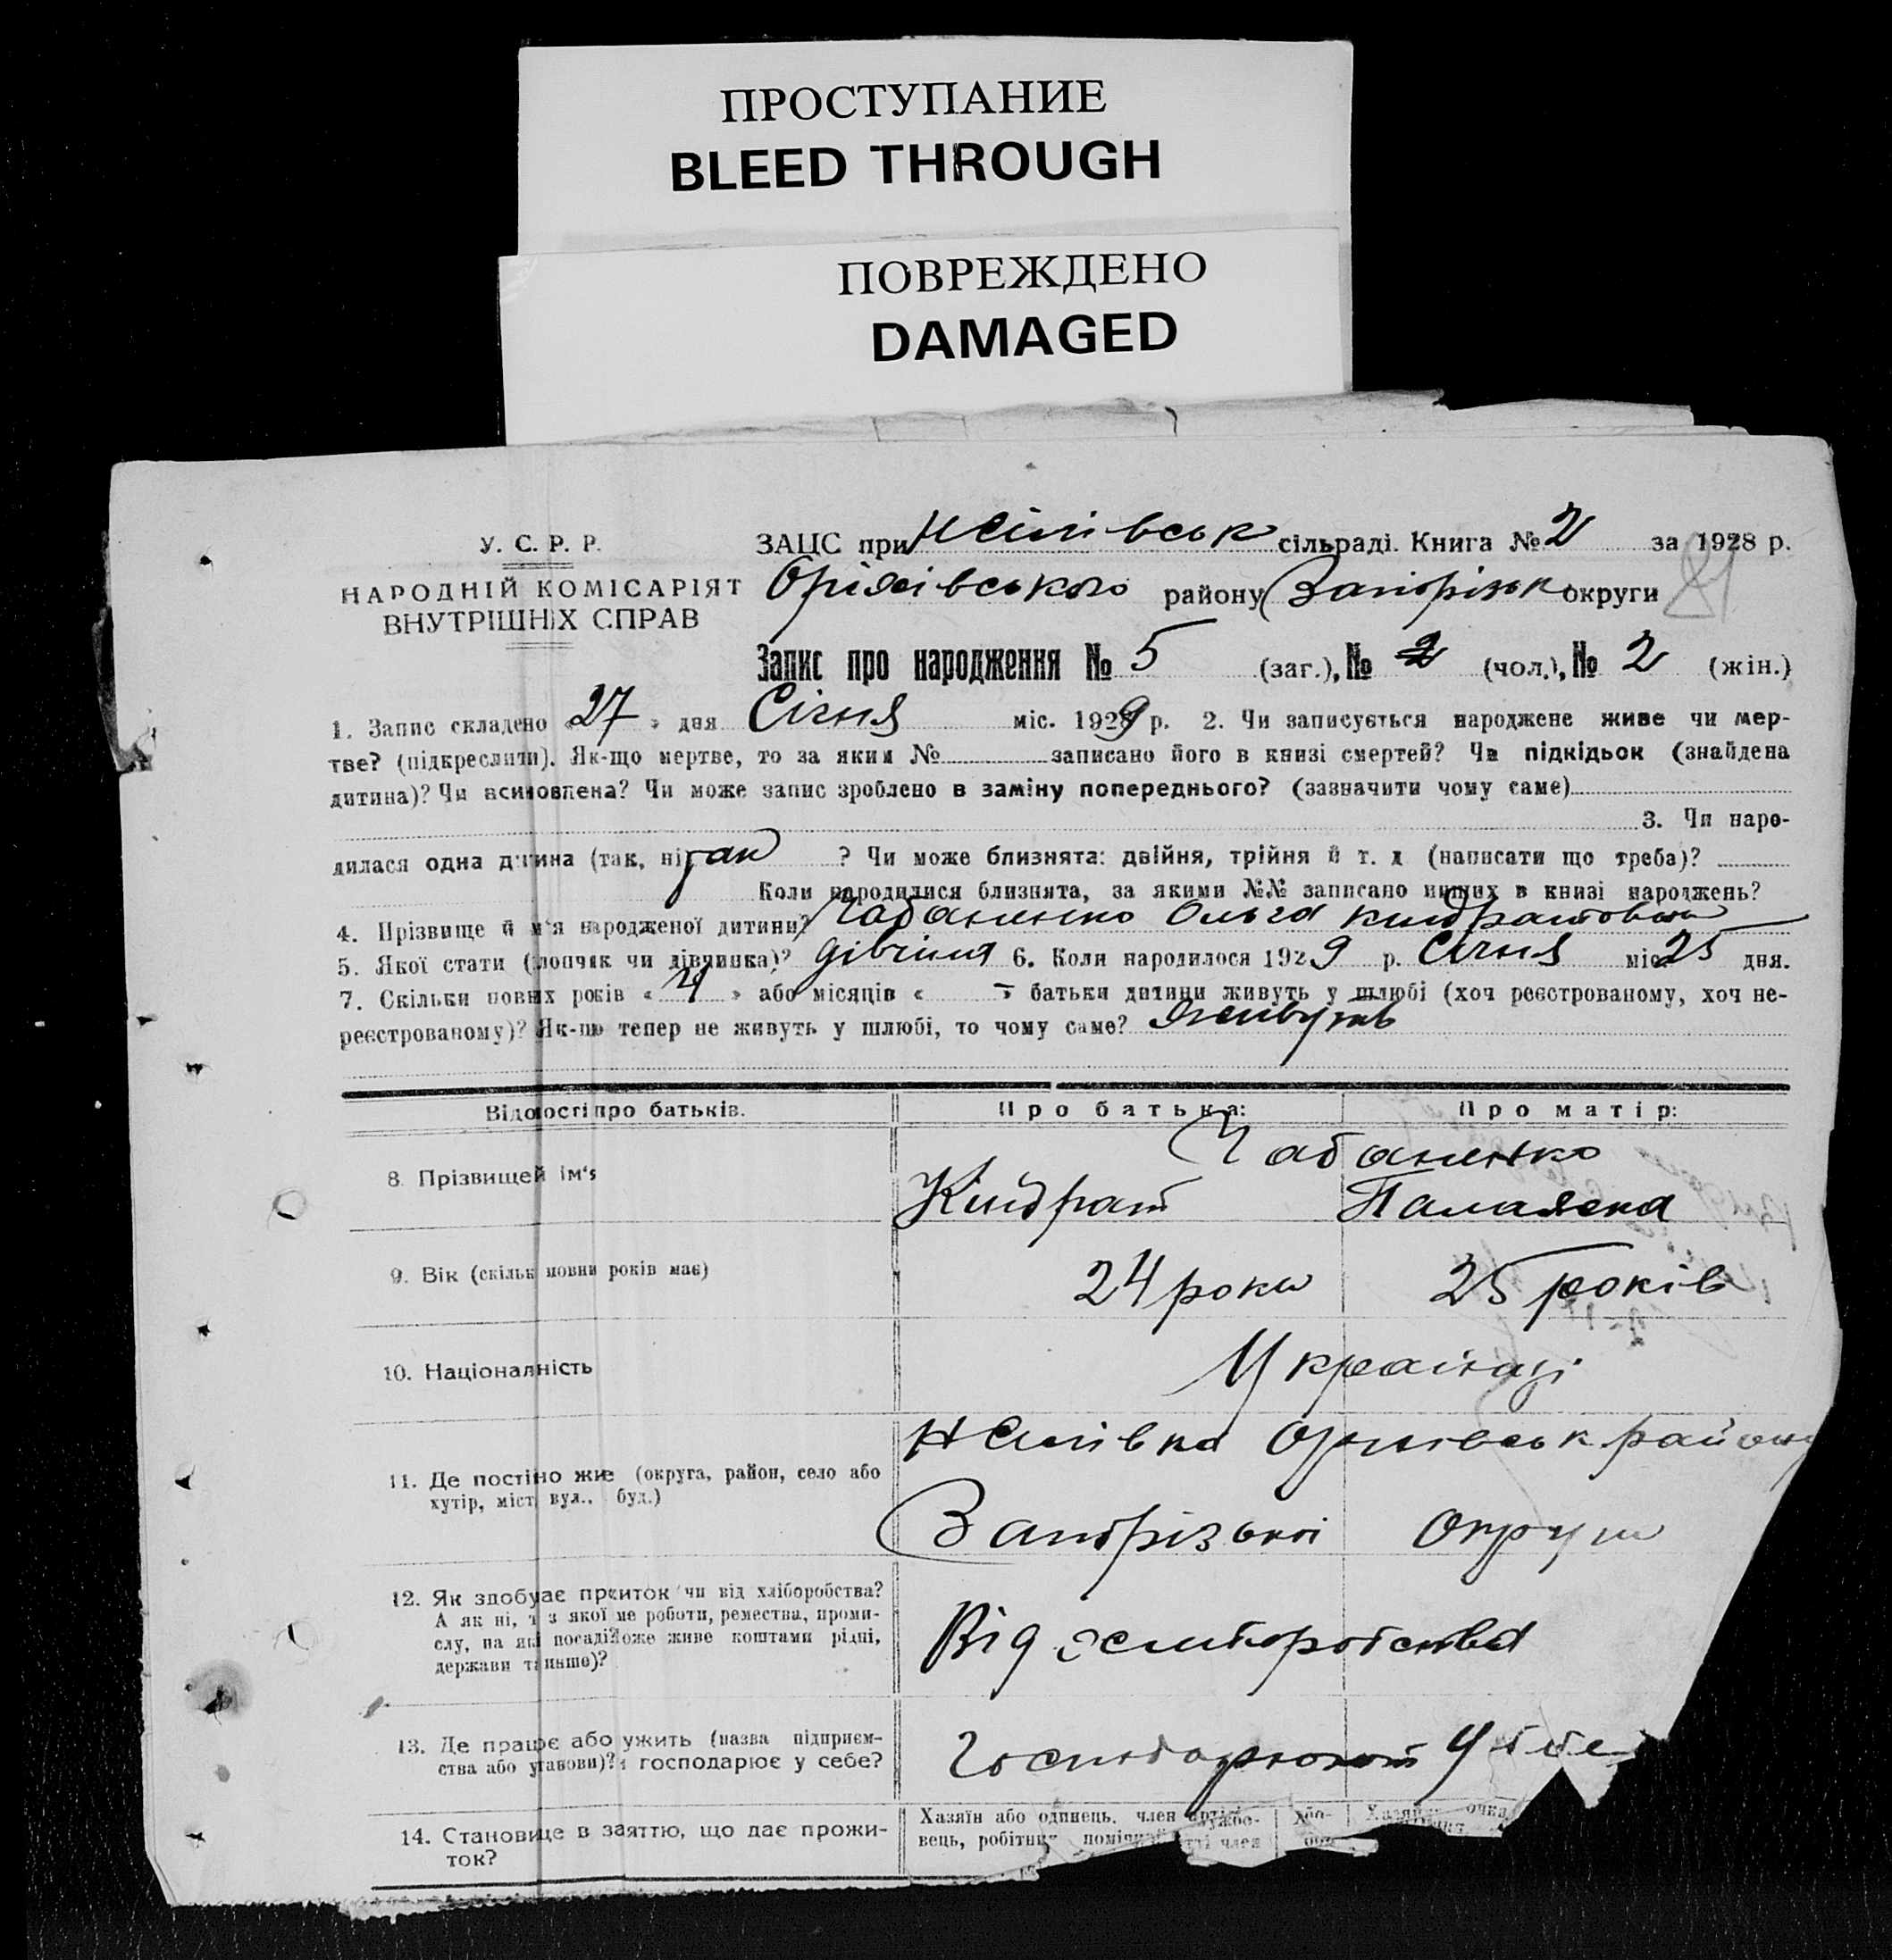 ПРОСТУПАНИЕ
BLEED THROUGH
ПОВРЕЖДЕНО
DAMAGED
У. С. Р. Р.
НАРОДНІЙ КОМІСАРІЯТ
ВНУТРІШНІХ СПРАВ
ЗАЦС при сільраді. Книга № 2 за 1928 р.
Оріхівського району Запорізьк округи
21
Запис про народження № 5 (заг.), № 2 (чол.), № 2 (жін.)
1. Запис складено «27» дня Січня міс. 1929 р. 2. Чи записується народжене живе чи мер-
тве? (підкреслити). Як-що мертве, то за яким № записано його в книзі смертей? Чи підкідьок (знайдена
дитина)? Чи всиновлена? Чи може запис зроблено в заміну попереднього? (зазначити чому саме)
3. Чи наро-
дилася одна дитина (так, ні) так ? Чи може близнята: двійня, трійня й т. д (написати що треба)?
Коли народилися близнята, за якими №№ записано инших в книзі народжень?
4. Прізвище й м'я народженої дитини? Чабаненко Ольга Киндратовна
5. Якої стати (хлопчик чи дівчинка)? дівчина 6. Коли народилося 1929 р. Січня міс 25 дня.
7. Скільки повних років « 4 » або місяців « » батьки дитини живуть у шлюбі (хоч реєстрованому, хоч не-
реєстрованому)? Як-що тепер не живуть у шлюбі, то чому саме? Живуть
Відомості про батьків.
Про батька:
Про матір:
8. Прізвище й ім'я
Чабаненко
Киндрат
Палажка
9. Вік (скільк повни років має)
24 роки
25 років
10. Національність
Українці
11. Де постійно живе (округа, район, село або
хутір, міст, вул., буд.)
Оріхівськ району
Запорізької Округи
12. Як здобуває прожиток чи від хліборобства?
А як ні, т з якої ме роботи, ремества, проми-
слу, на які посаді може живе коштами рідні,
держави т инше)?
Від хліборобства
13. Де працює або ужить (назва підприєм-
ства або установи)? господарює у себе?
Господарюют У себе
14. Становище в заяттю, що дає прожи-
ток?
Хазяїн або одинець, член артілі
вець, робітник